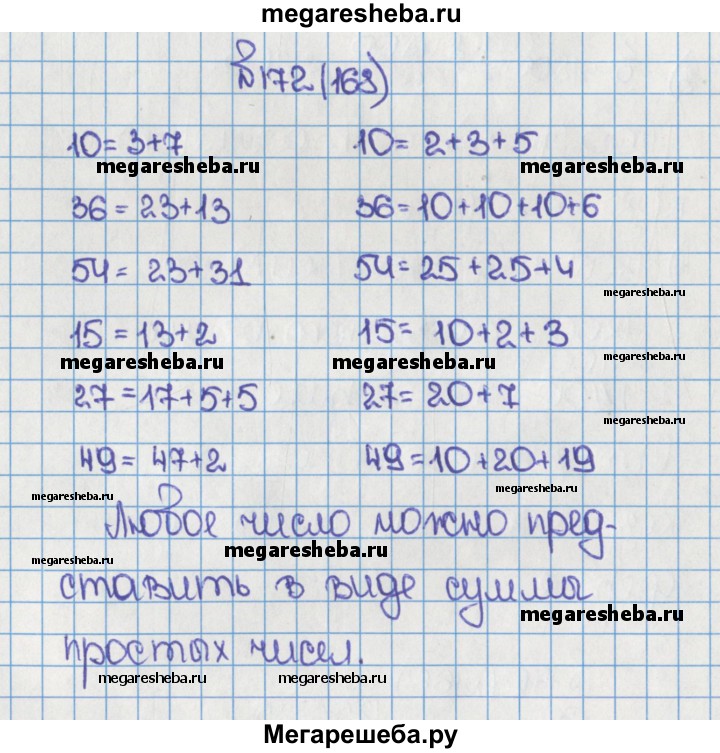 megaresheba.ru
№172(168)
10= 3+7 10= 2+3+5
megaresheba.ru megaresheba.ru
36 = 23+13 36=10+10+10+6
54= 23+31 54=25+25+4
megaresheba.ru
15=13+2 15= 10+2+3
megaresheba.ru megaresheba.ru megaresheba.ru
27=17+5+5 27= 20+7
49= 47+2 49=10+20+19
megaresheba.ru megaresheba.ru
Любое число можно пред-
megaresheba.ru megaresheba.ru
ставить в виде суммы
megaresheba.ru
простых чисел.
megaresheba.ru megaresheba.ru
Мегарешеба.ру